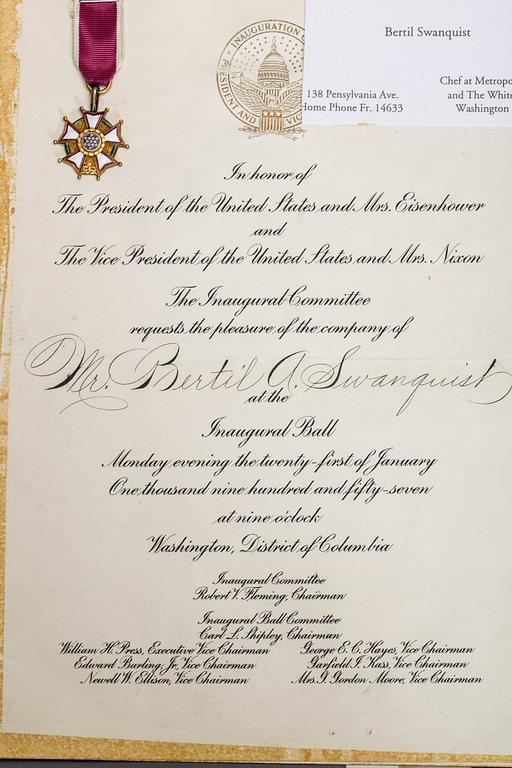 INAUGURATION
PRESIDENT AND VIC
Bertil Swanquist
Chef at Metropo
138 Pensylvania Ave.
and The White
Home Phone Fr. 14633
Washington
In honor of
The President of the United States and Mrs. Eisenhower
and
The Vice President of the United States and Mrs. Nixon
The Inaugural Committee
requests the pleasure of the company of
Mr. Bertil A. Swanquist
at the
Inaugural Ball
Monday evening the twenty-first of January
One thousand nine hundred and fifty-seven
at nine o'clock
Washington, District of Columbia
Inaugural Committee
Robert V. Fleming, Chairman
Inaugural Ball Committee
Carl L. Shipley, Chairman
William H. Press, Executive Vice Chairman
George E. C. Hayes, Vice Chairman
Edward Burling, Jr. Vice Chairman
Garfield I. Kass, Vice Chairman
Newell W. Ellison, Vice Chairman
Mrs. J. Gordon Moore, Vice Chairman